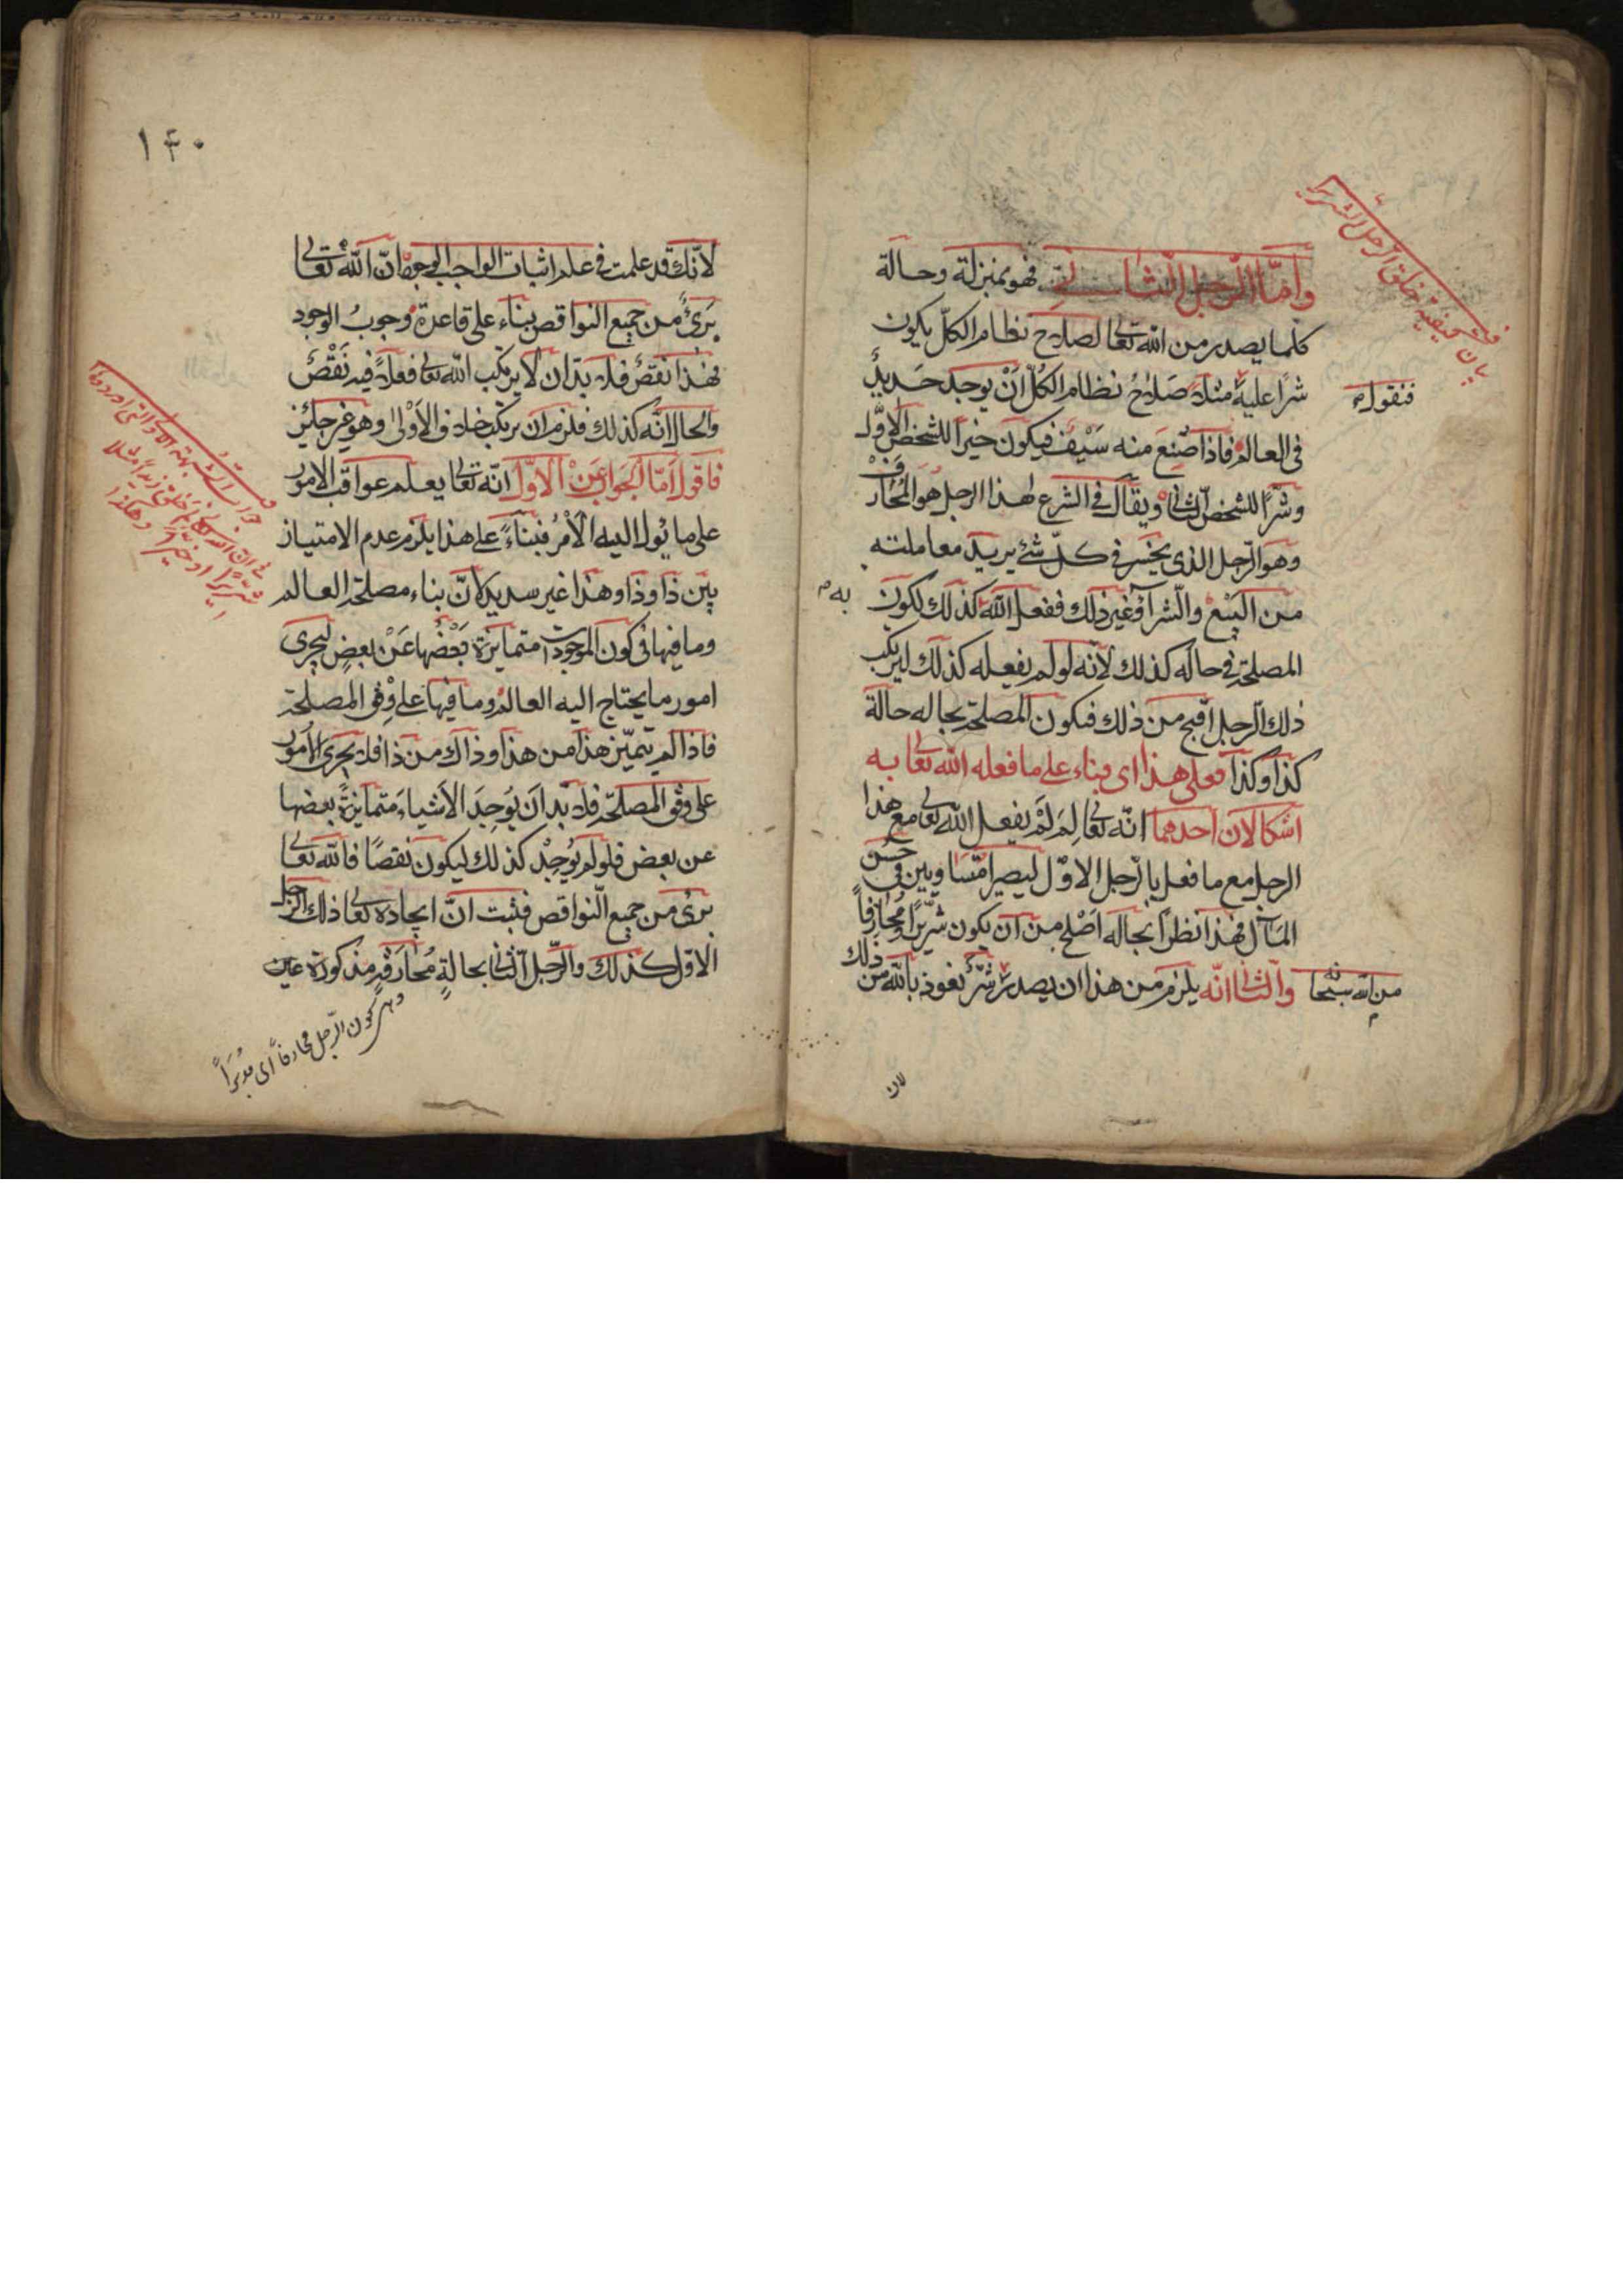 وأمّا الرّجل الثّاني فهو بمنزلة وحالة
كلّما يصدر من الله تعالى لصلاح نظام الكلّ يكون
شرًا عليه مثلاً صَلاحُ نظام الكُلّ أنْ يوجد حَديدٌ
فنقول
في العالم فاذا صُنِعَ منه سَيْفٌ فيكون خيرًا للشخص الاوّل
وشرًّا للشخص الثّاني ويقال في الشرع لهذا الرجل هُوَ المُحَارَفْ
وهو الرّجل الذي يخسر في كلّ شئ يريد معاملته
من البَيْع والشّرآء وغير ذلك ففعل الله كذلك لكون
به
المصلحة في حاله كذلك لأنّه لو لم يفعله كذلك ليرتكب
ذلك الرجل اقبح من ذلك فيكون المصلحة بحاله حالة
كذا وكذا فعلى هذا اى وبناء على ما فعله الله تعالى به
اشكالان أحدهما انّه تعالى لِمَ لَمْ يفعل الله تعالى مع هذا
الرجل مع ما فعل بالرّجل الاوّل ليصيرا متّساويين في حُسن
المَآل فهذا نظرًا بحاله أصْلح من ان يكون شرّيرًا ومُحارَفاً
من الله سبحانه والثّاني انّه يلزم من هذا ان يصدر شرٌّ نعوذ بالله من ذلك
لان
بيان كيفيّة خلق الرّجل الشرير
١٤٠
لانّك قد علمت في علم اثبات الواجب الوجود انّ الله تعالى
بَرئٌ من جميع النواقص بناء على قاعدة وجوبُ الوجود
فهذا نقصٌ فلا بدّ ان لا يرتكب الله تعالى فعلاً فيه نَقْصٌ
والحال انّه كذلك فلزم ان يرتكب خلاف الأَوْلى وهو غير جائز
فاقول أمّا الجَوابُ عَنْ الأوّل انّه تعالى يعلم عواقب الامور
على ما يَؤل اليه الأمْرُ فبناءً على هذا يلزم عدم الامتياز
بين ذا وذا وهذا غير سديد لانّ بناء مصلحة العالم
وما فيها في كون الموجودات متمايزة بَعْضُها عَنْ بعضٍ ليجرى
امور ما يحتاج اليه العالم وما فيها على وِفْق المصلحة
فاذا لم يتميّز هذا من هذا وذاك من ذا فلا يجرى الأمور
على وفق المصلحة فلا بُدّ ان يُوجِدَ الأشياءَ متمايزةً بعضها
عن بعض فلو لم يُوجِدْ كذلك ليكون نقصًا فالله تعالى
برئ من جميع النّواقص فثبت انّ ايجاده تعالى ذلك الرّجل
الاوّل كذلك والرّجل الثاني بحالةٍ مُحارَفة مذكورة عين
وهى كون الرّجل محارفاً أى مُدْبَراً